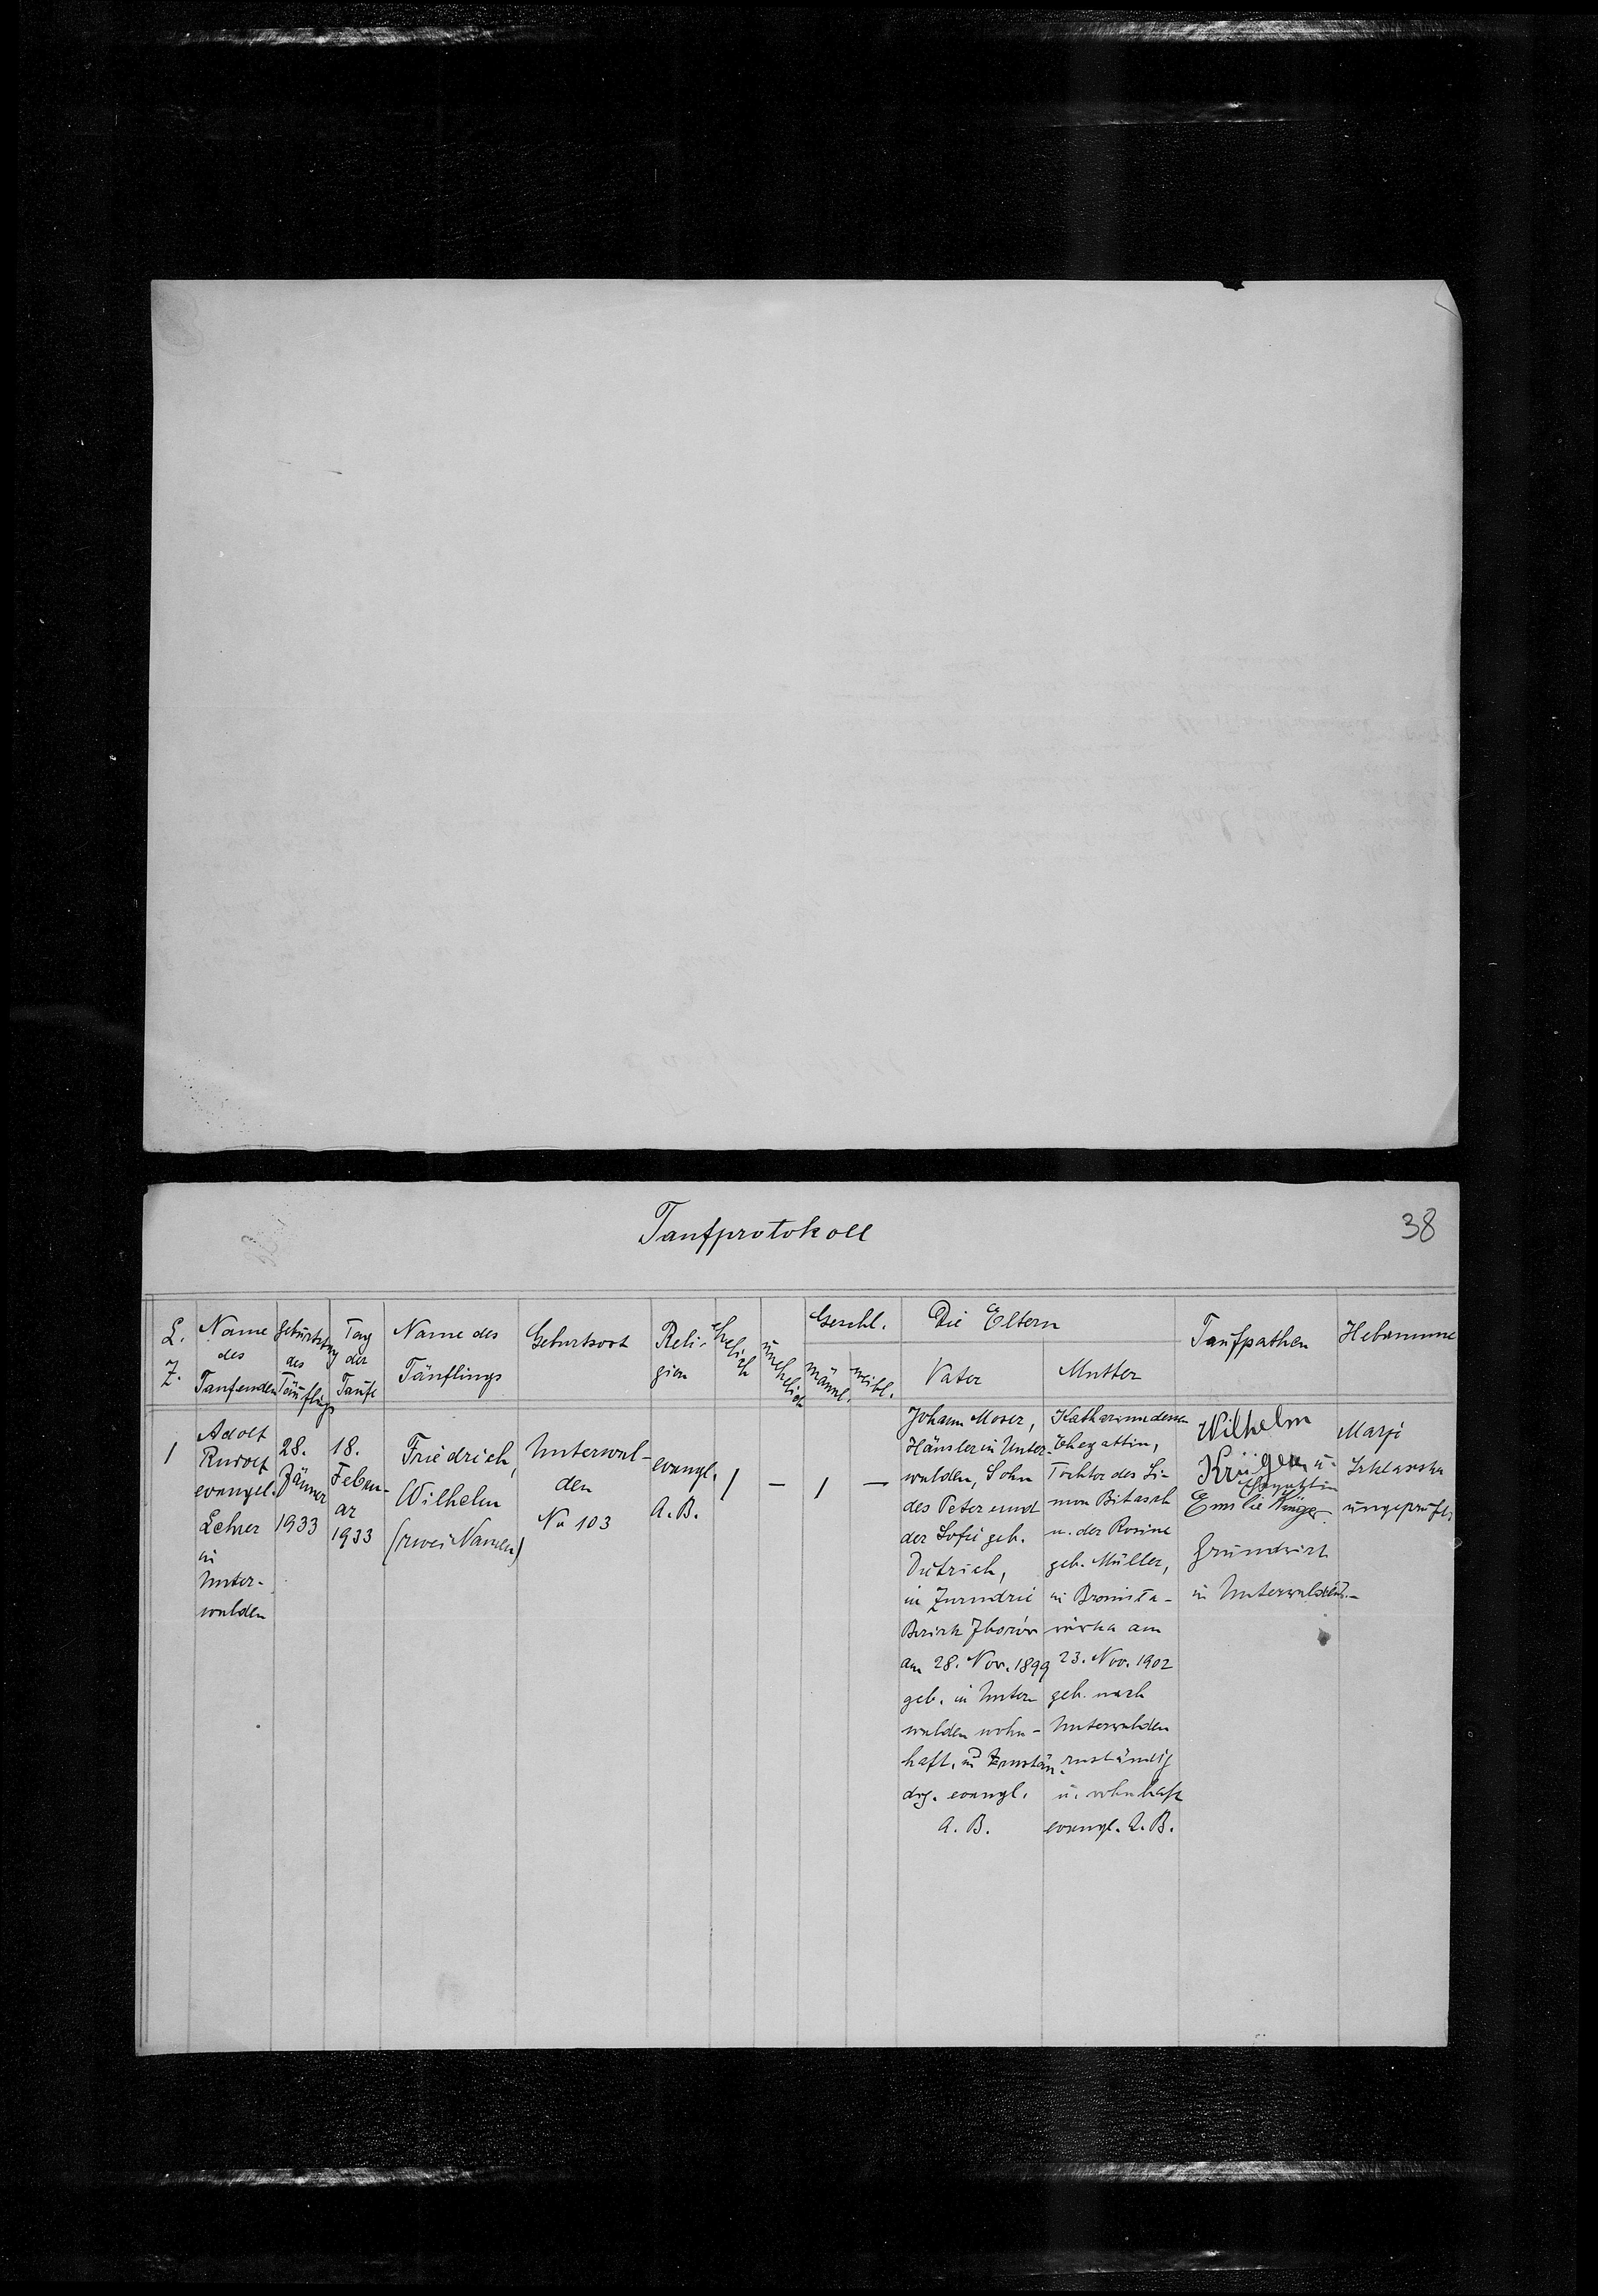 Taufprotokoll
38
L. Z.
Name des Taufenden
Geburtstag des Täuflings
Tag der Taufe
Name des Täuflings
Geburtsort
Religion
ehelich
unehelich
Geschl.
männl.
weibl.
Die Eltern
Vater
Mutter
Taufpathen
Hebamme
1
Adolf
Rudolf
evangel.
Lehrer
in
Unter-
walden
28.
Jänner
1933
18.
Febru-
ar
1933
Friedrich,
Wilhelm
(zwei Namen)
Unterwal-
den
No 103
evangl.
A.B.
1
—
1
—
Johann Moser,
Häusler in Unter-
walden, Sohn
des Peter und
der Sofie geh.
Dietrich,
in
Bezirk Zborów
am 28. Nov. 1899
geb. in Unter
walden wohn-
haft, u. Zustän-
dig. evangl.
A. B.
Katharina dessen
Ehegattin,
Tochter des Si-
mon Bitasch
u. der Rosine
geb. Müller,
in
am
23. Nov. 1902
geb. nach
Unterwalden
zuständig
u. wohnhaft
evangl. A. B.
Wilhelm
Krüger u.
Ehegattin
Emilie
Grundwirt
in Unterwalden.
ungeprüft.